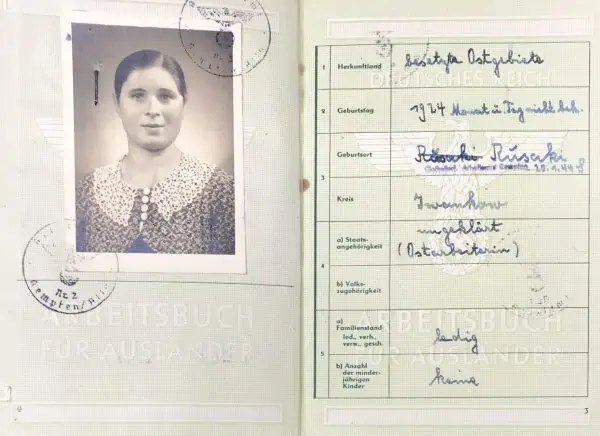 Nr. 2
Kempten/Allg.
ARBEITSBUCH
FÜR AUSLÄNDER
2
DEUTSCHES REICH
1 Herkunftland besetzte Ostgebiete
2 Geburtstag 1924 Monat u. Tag nicht bek.
Geburtsort Rusaki Rusaki
Arbeitsamt Kempten, 20.1.44
3
Kreis Iwankow
a) Staats- ungeklärt
angehörigkeit (Ostarbeiterin)
4
b) Volks-
zugehörigkeit
ARBEITSBUCH
a)
Familienstand
led., verh., ledig
verw., gesch.
FÜR AUSLÄNDER
5
b) Anzahl
der minder- keine
jährigen
Kinder
3